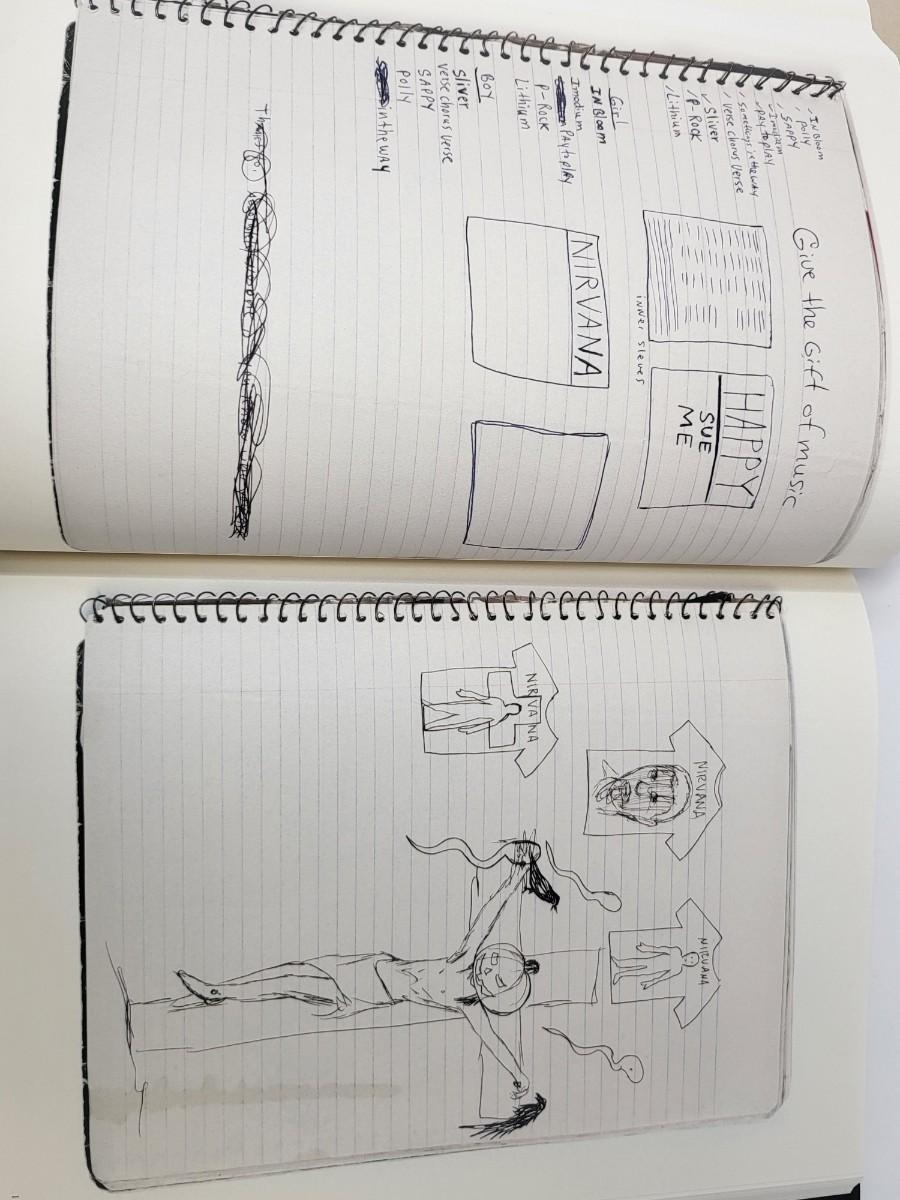 Give the Gift of music
IN Bloom
Polly
SAPPY
PAY to play
Something in the way
Verse chorus Verse
Sliver
P-ROCK
Lithium
HAPPY
SUE
ME
inner sleves
Girl
IN Bloom
Imodium
PAY to play
P-ROCK
Lithium
NIRVANA
BOY
Sliver
verse chorus verse
SAPPY
Polly
in the WAY
NIRVANA
NIRVANA
NIRVANA